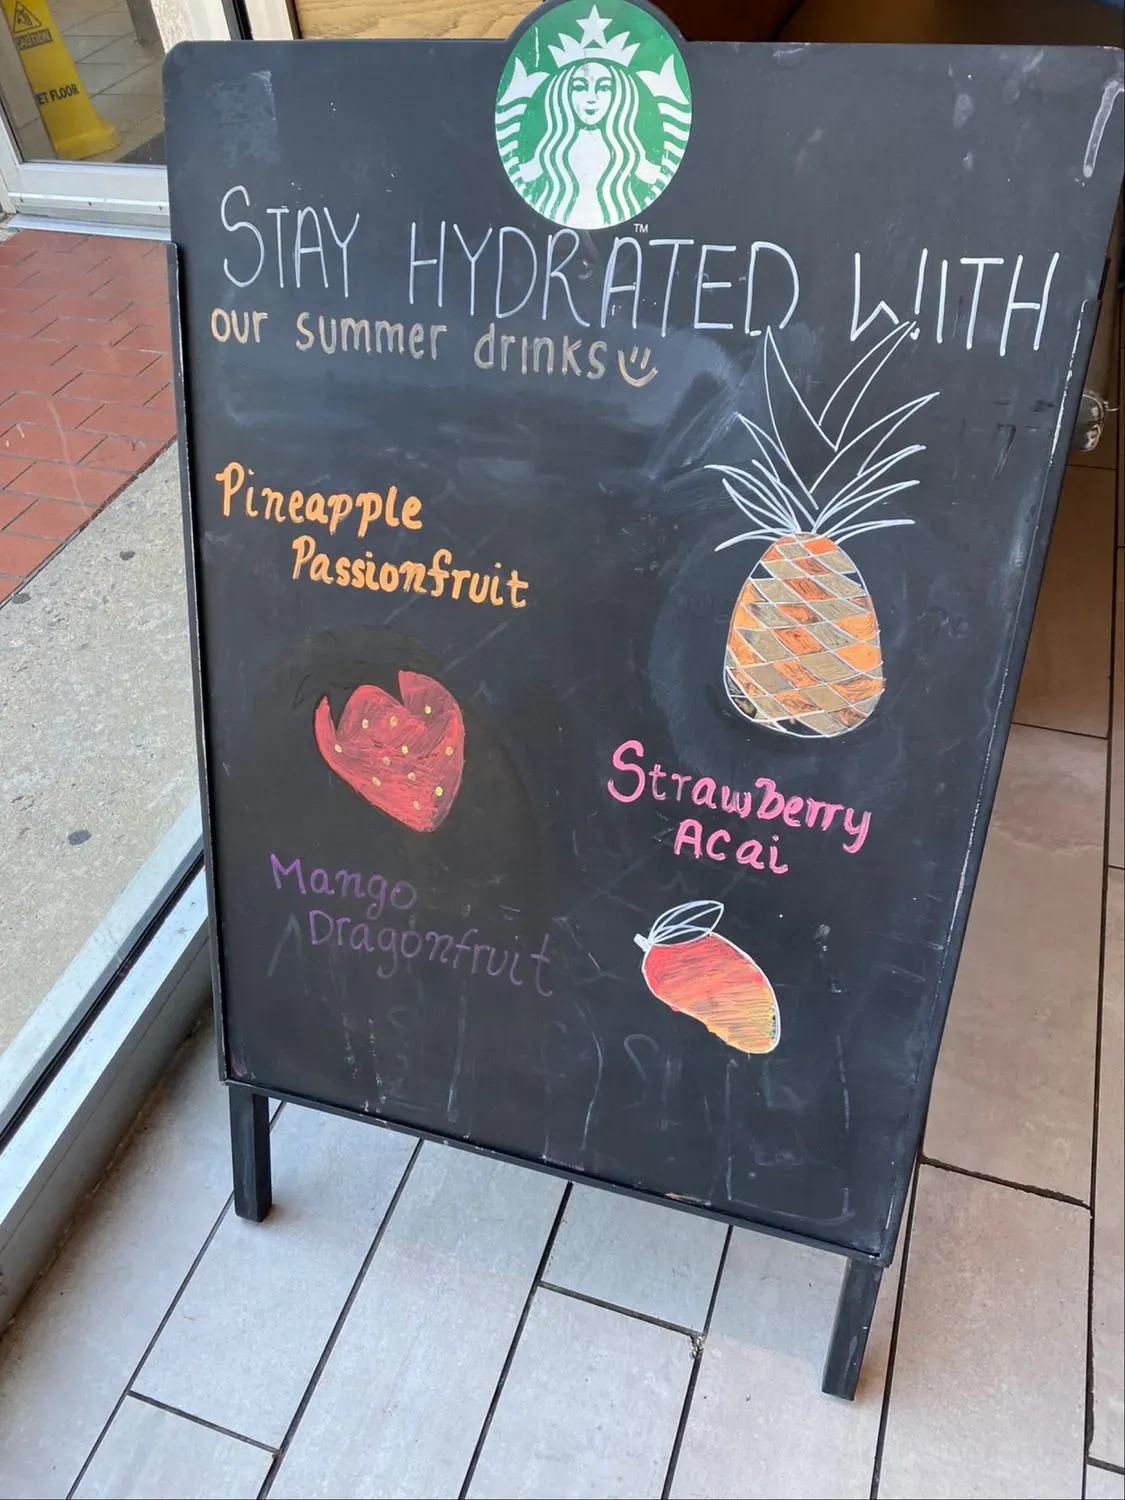 CAUTION
WET FLOOR
TM
STAY HYDRATED WITH
our summer drinks
Pineapple
Passionfruit
Strawberry
Acai
Mango
Dragonfruit